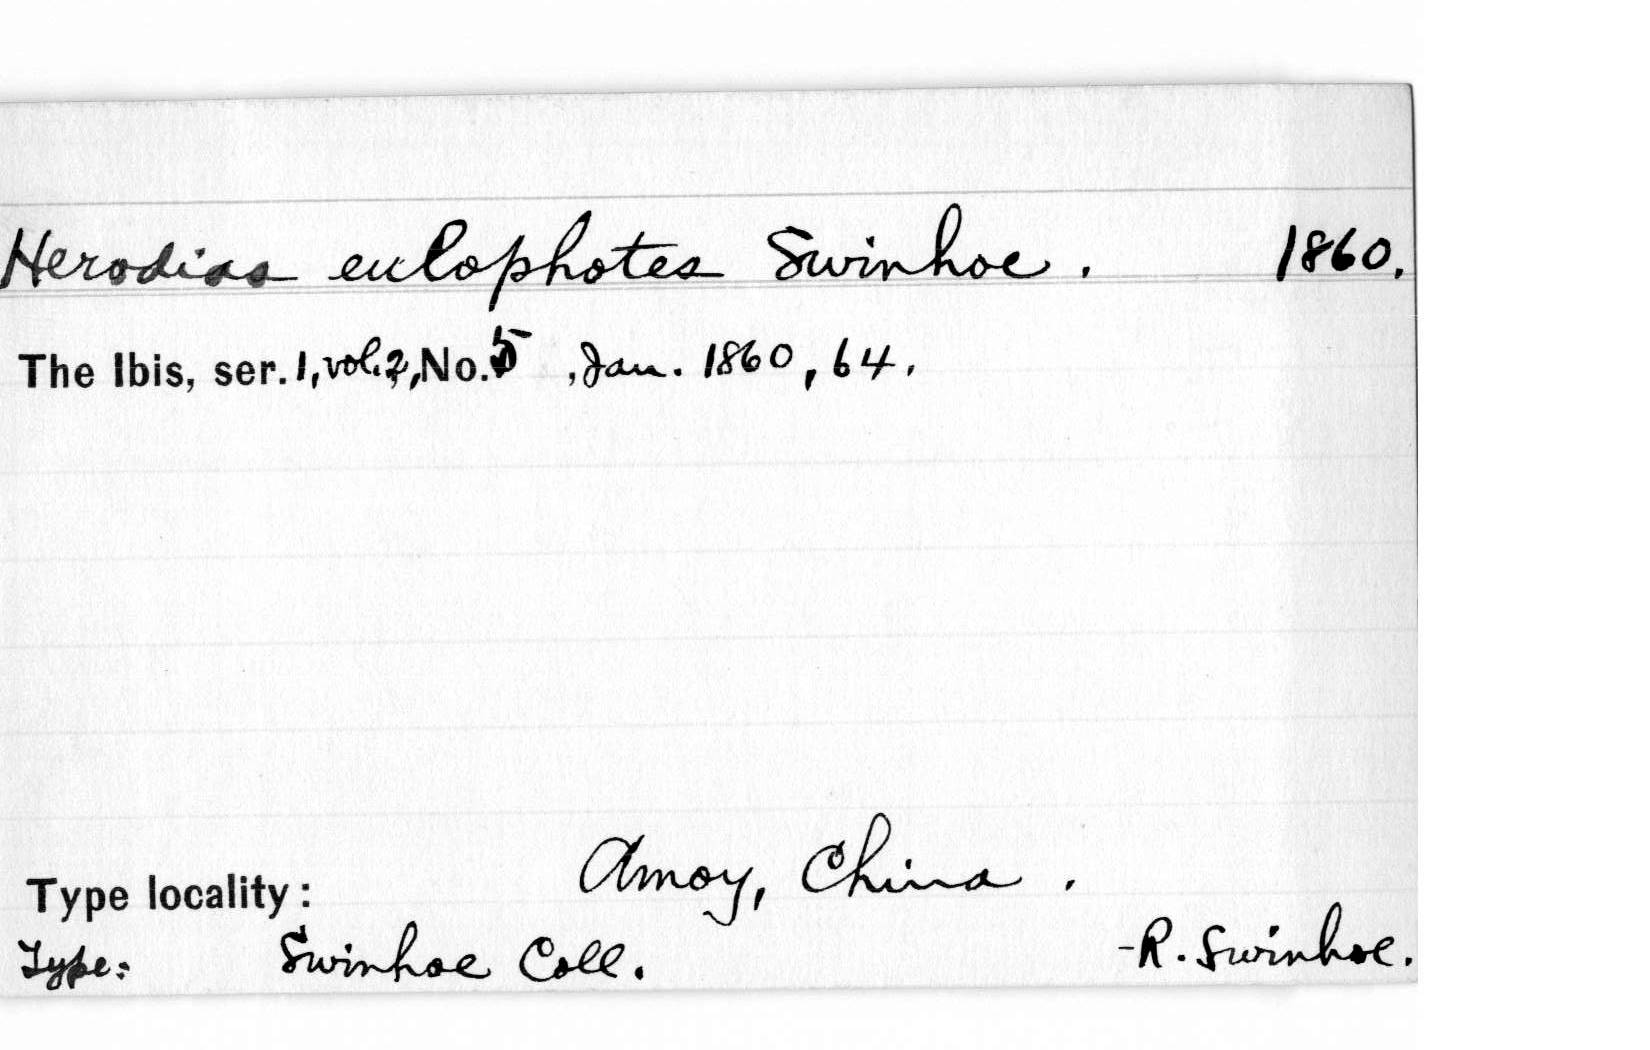 Herodias eulophotes Swinhoe. 1860.
The Ibis, ser. 1, vol. 2, No. 5, Jan. 1860, 64.
Type locality: Amoy, China.
Type: Swinhoe Coll. -R. Swinhoe.